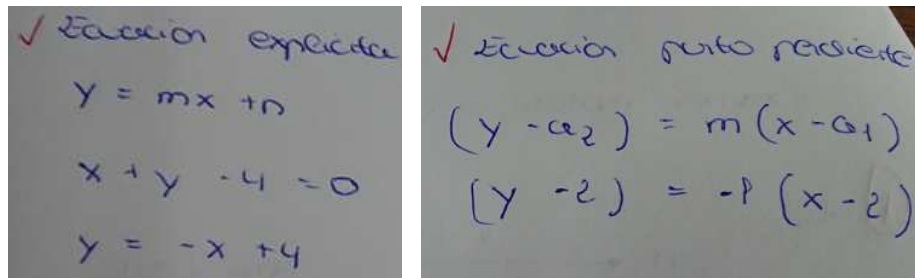 ✓ Ecuación explícita
y = mx + n
x + y - 4 = 0
y = -x + 4
✓ Ecuación punto pendiente
(y - a₂) = m(x - a₁)
(y - 2) = -1 (x - 2)